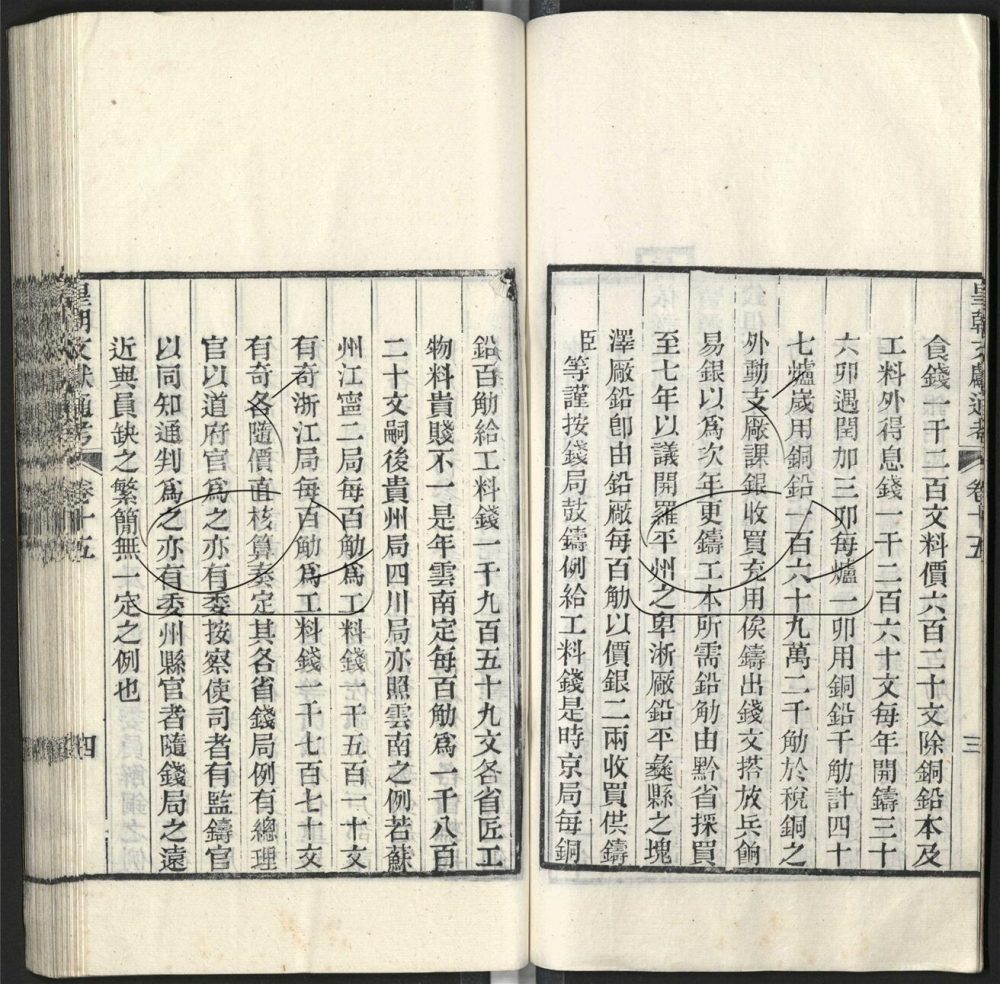 皇朝文獻通考 卷十五 三
食錢一千二百文料價六百二十文除銅鉛本及
工料外得息錢一千二百六十文每年開鑄三十
六卯遇閏加三卯每爐一卯用銅鉛千觔計四十
七爐歲用銅鉛一百六十九萬二千觔於稅銅之
外動支厰課銀收買充用俟鑄出錢文搭放兵餉
易銀以爲次年更鑄工本所需鉛觔由黔省採買
至七年以議開羅平州之卑淅厰鉛平彝縣之塊
澤厰鉛卽由鉛厰每百觔以價銀二兩收買供鑄
臣等謹按錢局鼓鑄例給工料錢是時京局每銅
鉛百觔給工料錢一千九百五十九文各省匠工
物料貴賤不一是年雲南定每百觔爲一千八百
二十文嗣後貴州局四川局亦照雲南之例若蘇
州江寧二局每百觔爲工料錢一千五百一十文
有奇浙江局每百觔爲工料錢一千七百七十文
有奇各隨價直核算奏定其各省錢局例有總理
官以道府官爲之亦有委按察使司者有監鑄官
以同知通判爲之亦有委州縣官者隨錢局之遠
近與員缺之繁簡無一定之例也
皇朝文獻通考 卷十五 四